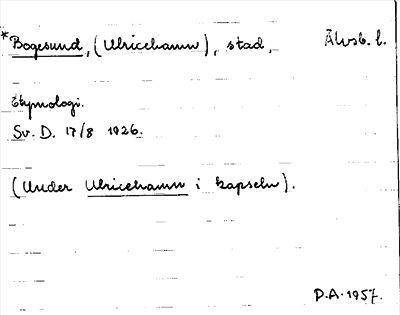 *Bogesund, (Ulricehamn), stad, Älvsb. l.
Etymologi.
Sv. D. 17/8 1926.
(Under Ulricehamn i kapseln).
D.A. 1957.